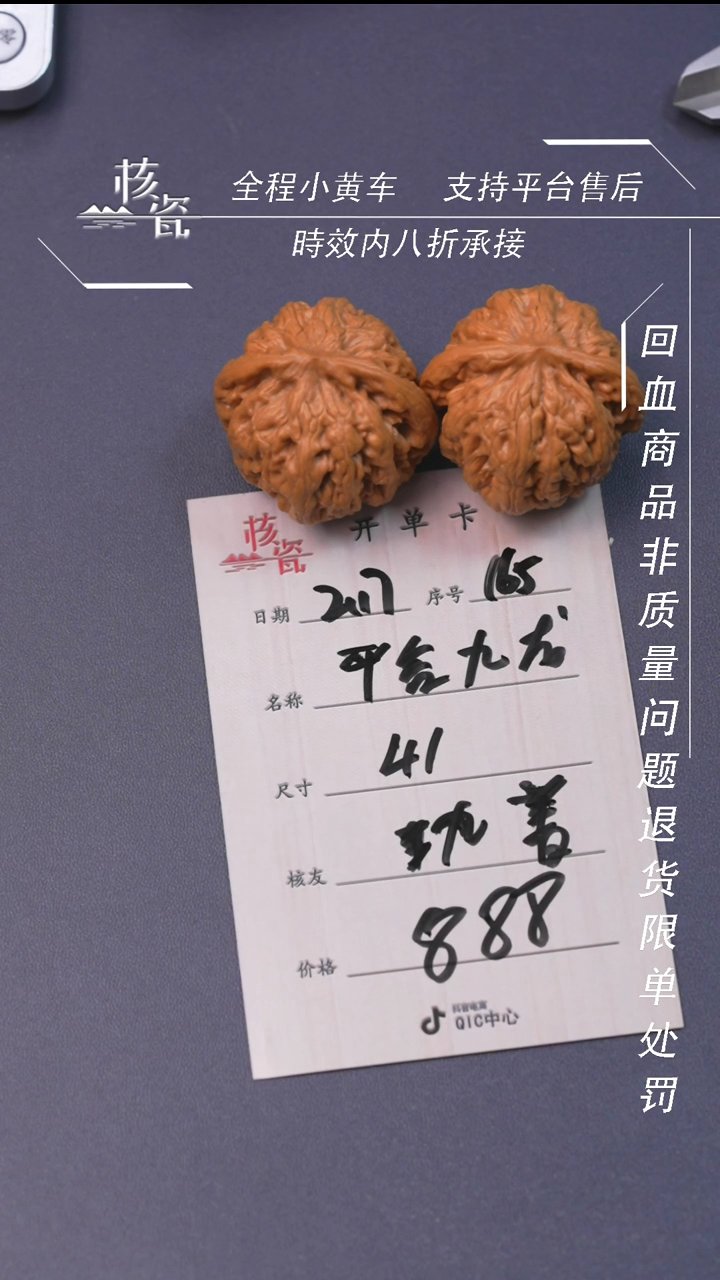 核瓷
全程小黄车 支持平台售后
時效内八折承接
回血商品非质量问题退货限单处罚
核瓷
开单卡
日期 序号 165
名称 平谷九龙
尺寸 41
核友
价格 888
抖音电商
QIC中心